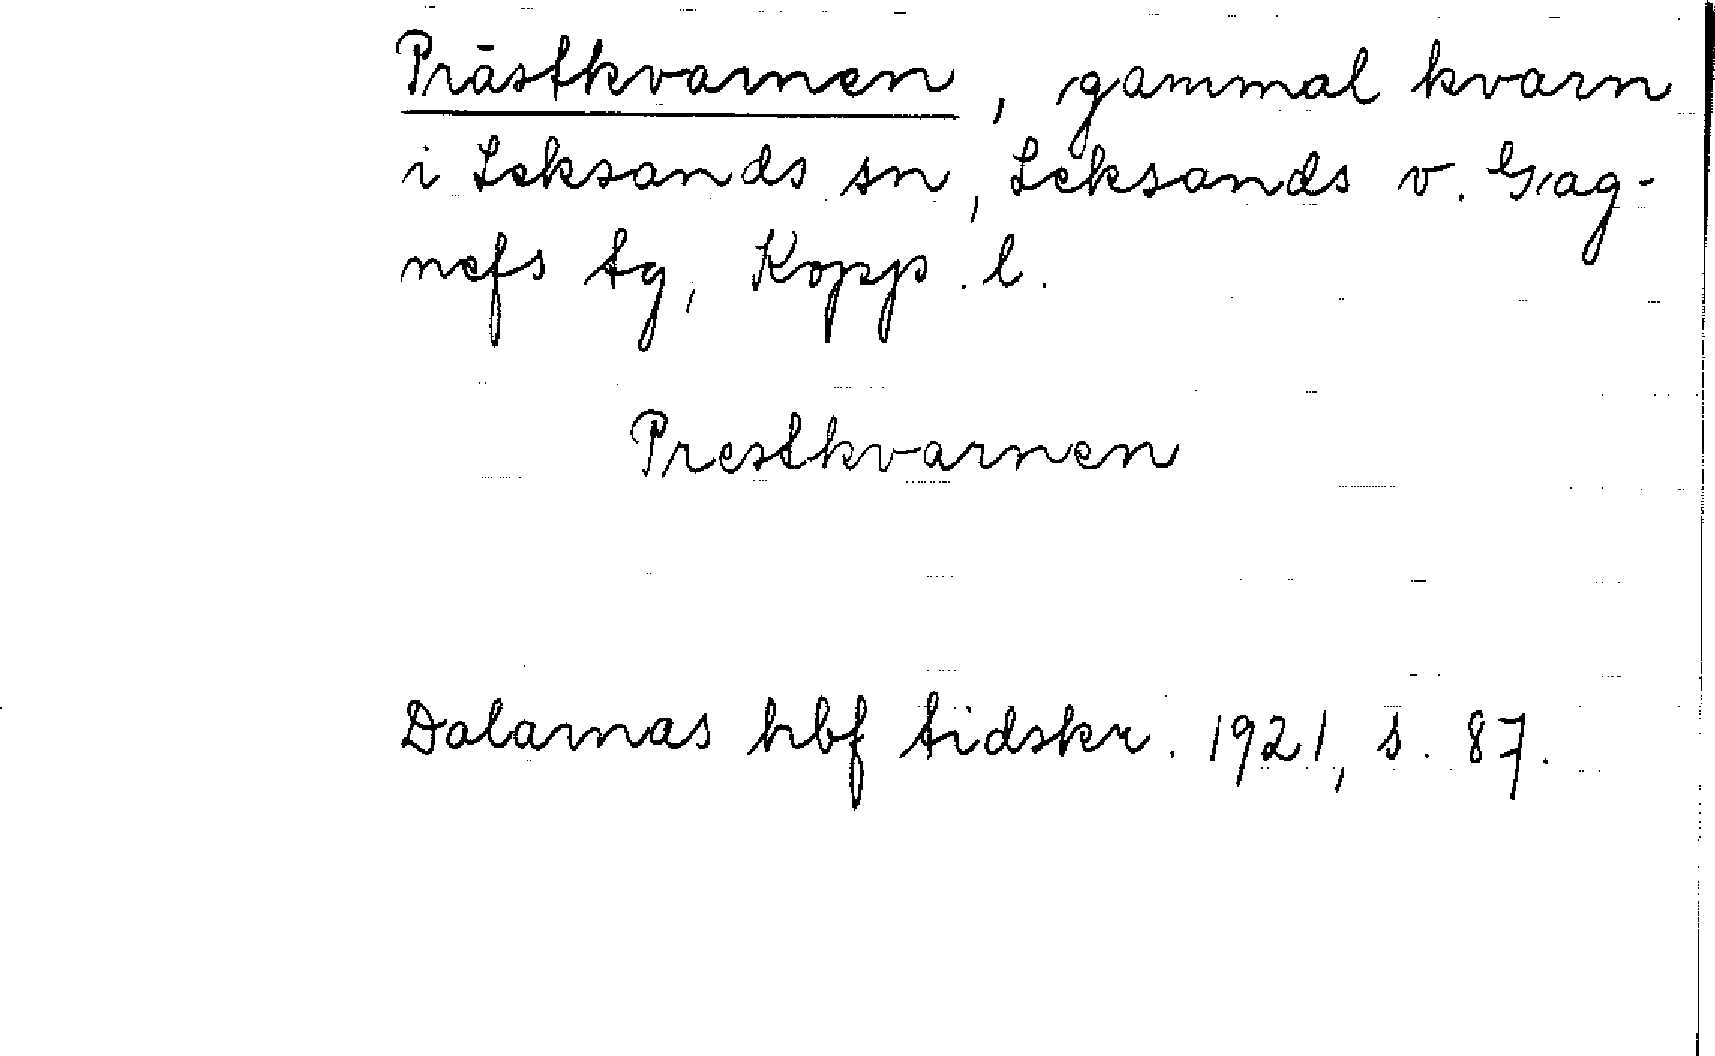 Prästkvarnen, gammal kvarn
i Leksands sn, Leksands o. Gag-
nefs tg, Kopp. l.
Prestkvarnen
Dalarnas hbf tidskr. 1921, s. 87.